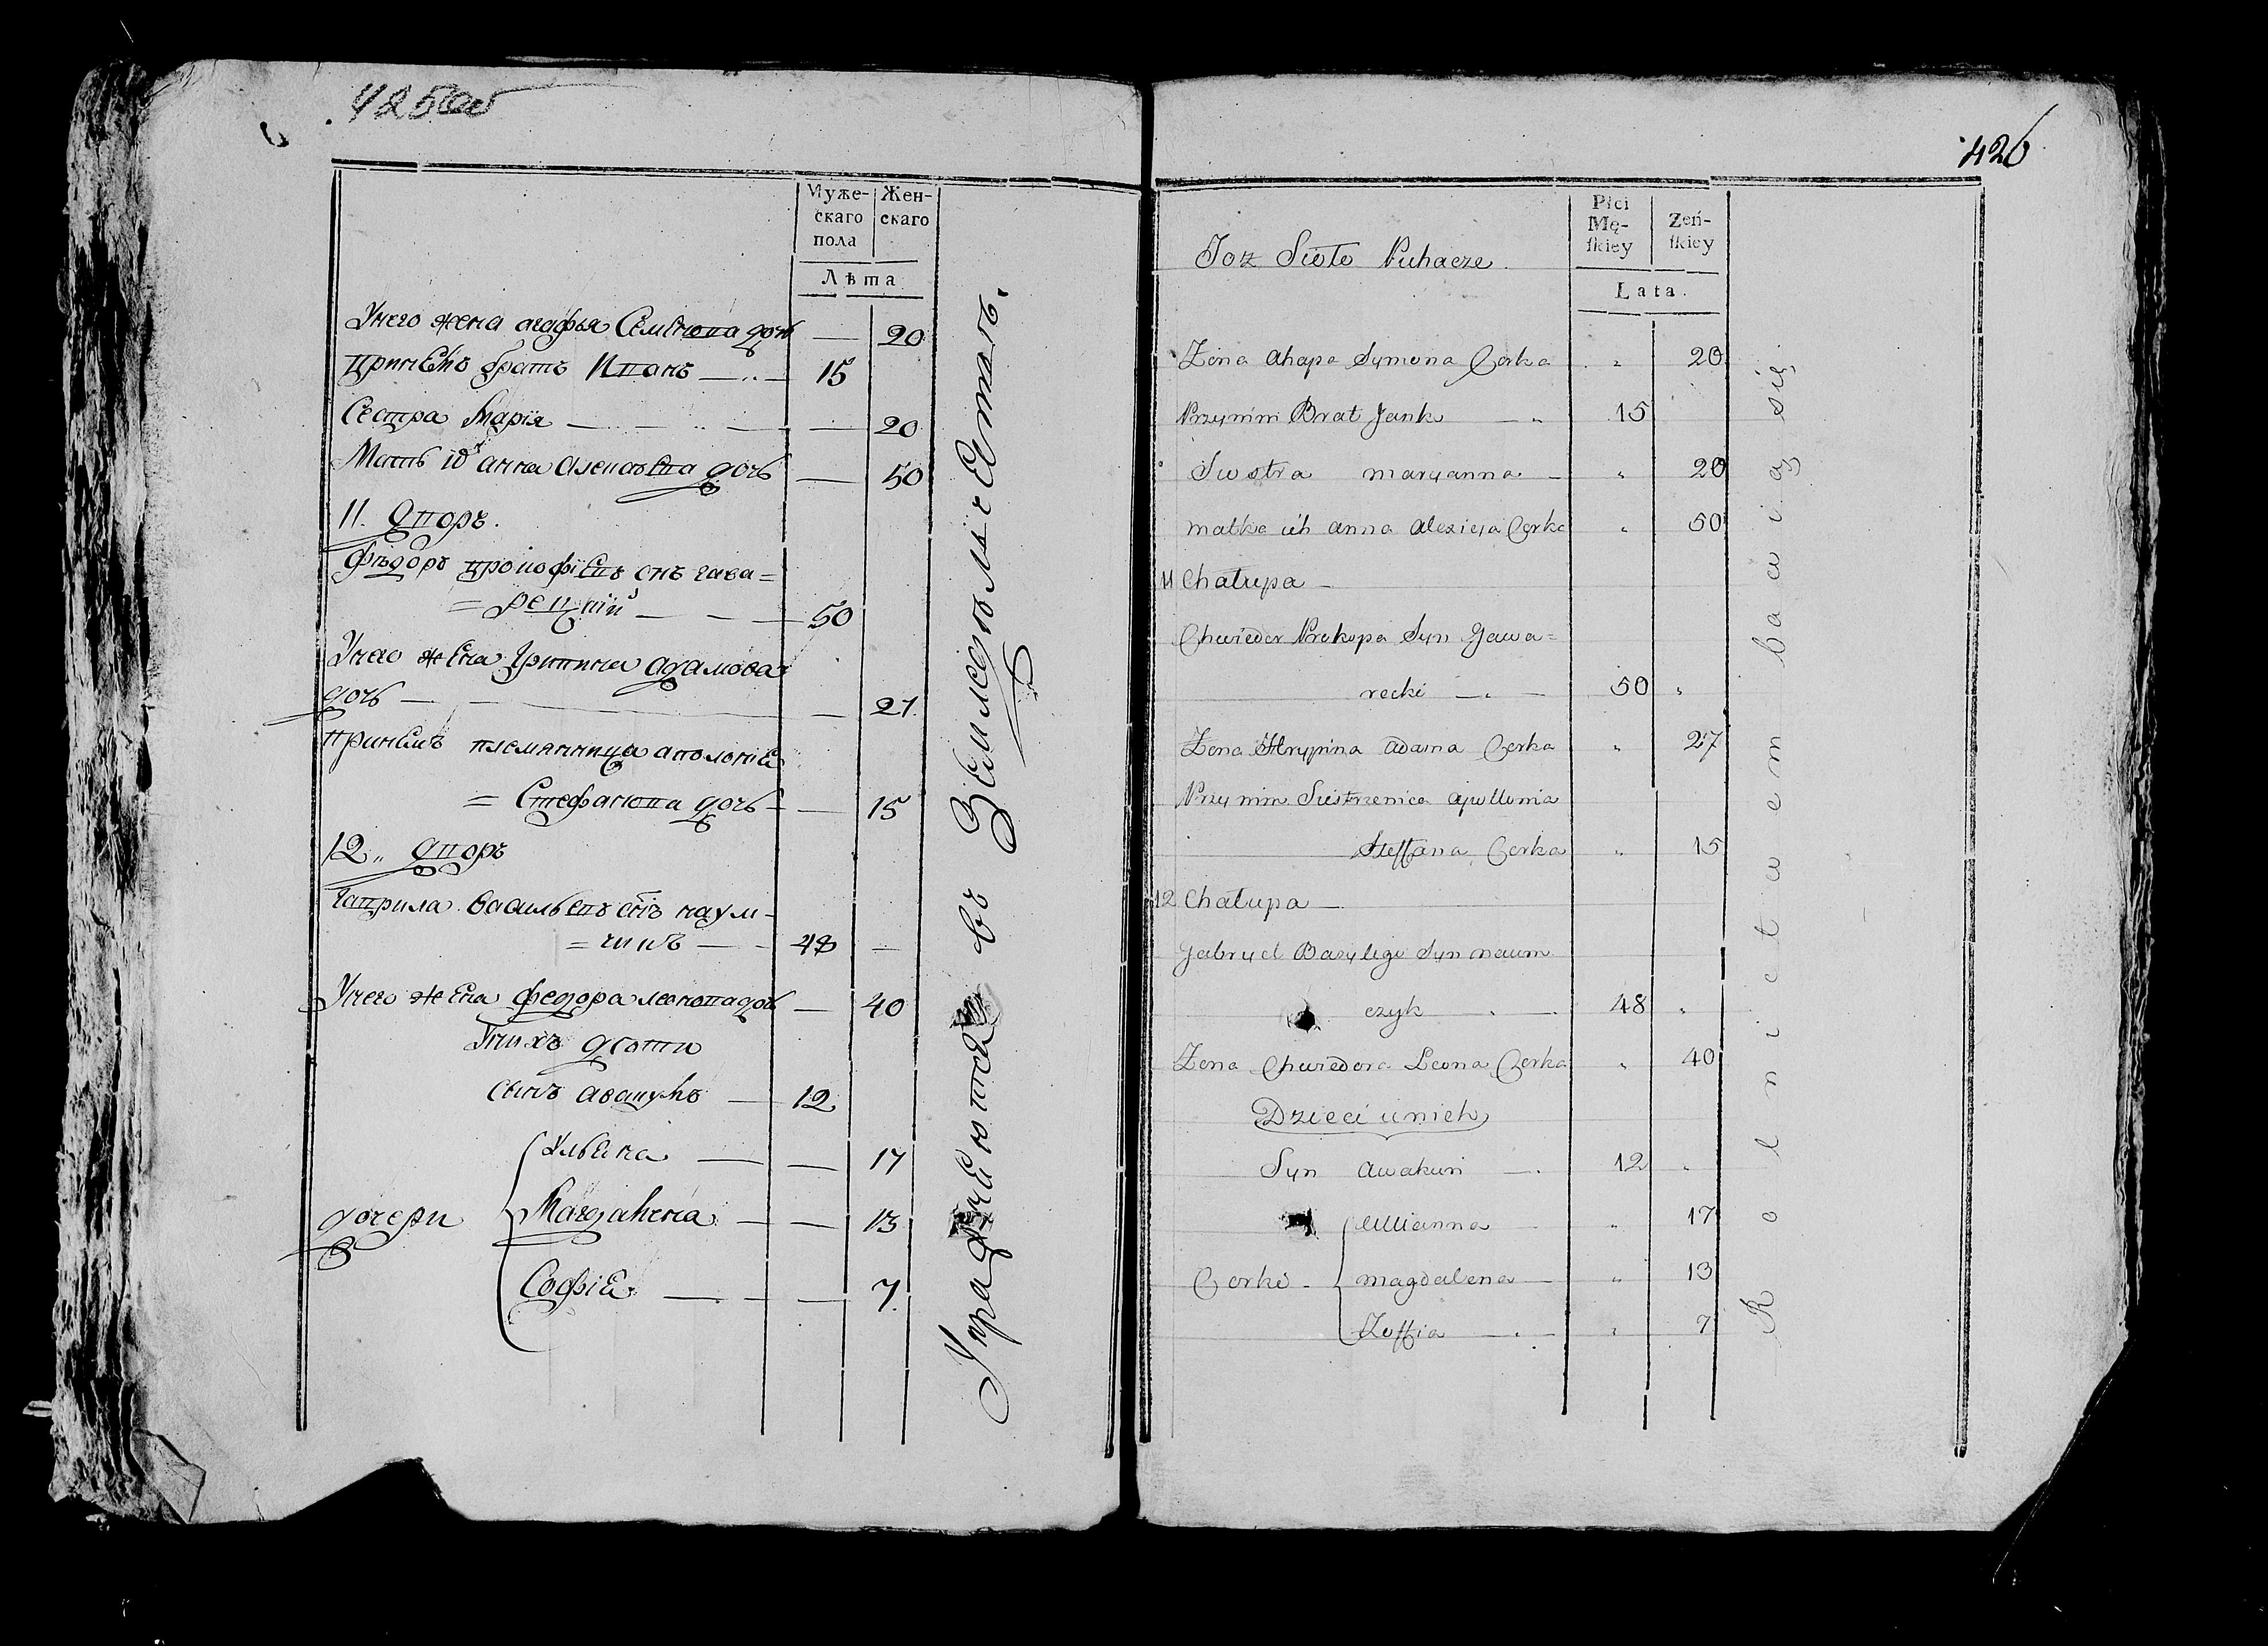 425об
Муже-
скаго
пола
Жен-
скаго
Лѣта
Унего жена агафья Семенова дочь — 20
принемъ братъ Иванъ — 15
Сестра Марія — 20
Мать их анна алексѣева дочь — 50
11. дворъ.
Фѣдоръ прокофіевъ снъ гава=
=рецкій — 50
Унего жена Грипина адамова
дочь — 27
принемъ племянница аполоніа
= Стефанова дочь — 15
12 „ дворъ
гаврила васильевъ снъ наум-
=чикъ — 48 —
Унего жена федора леонова дочь — 40
Унихъ дѣти
сынъ авакумъ — 12
Ульяна — — 17
дочери Магдалена — — 13
Софіа — — 7
Упражняются въ Земледѣльстве.
426
Toż Sioło Puhacze
Płci
Mę-
ſkiey
Zeń-
ſkiey
Lata.
Żona Ahapa Symona Corka „ 20
Przy nim Brat Jank — „ 15
Siostra maryanna — „ 20
matka ich anna alexieja Corka „ 50
11 Chałupa —
Chwiedor Prokopa Syn Gawa=
recki — „ — 50 „
Żona Hrypina adama Corka „ 27
Przy nim Siestrzenica apollonia
Steffana Corka „ 15
12 Chałupa —
Gabryel Bazylego Syn naum
czyk — 48 „
Żona Chwiedora Leona Corka „ 40
Dzieci unich
Syn awakum — 12 „
ullianna — „ 17
Corki - magdalena — „ 13
Zoffia — „ 7
Rolnictwem bawią się